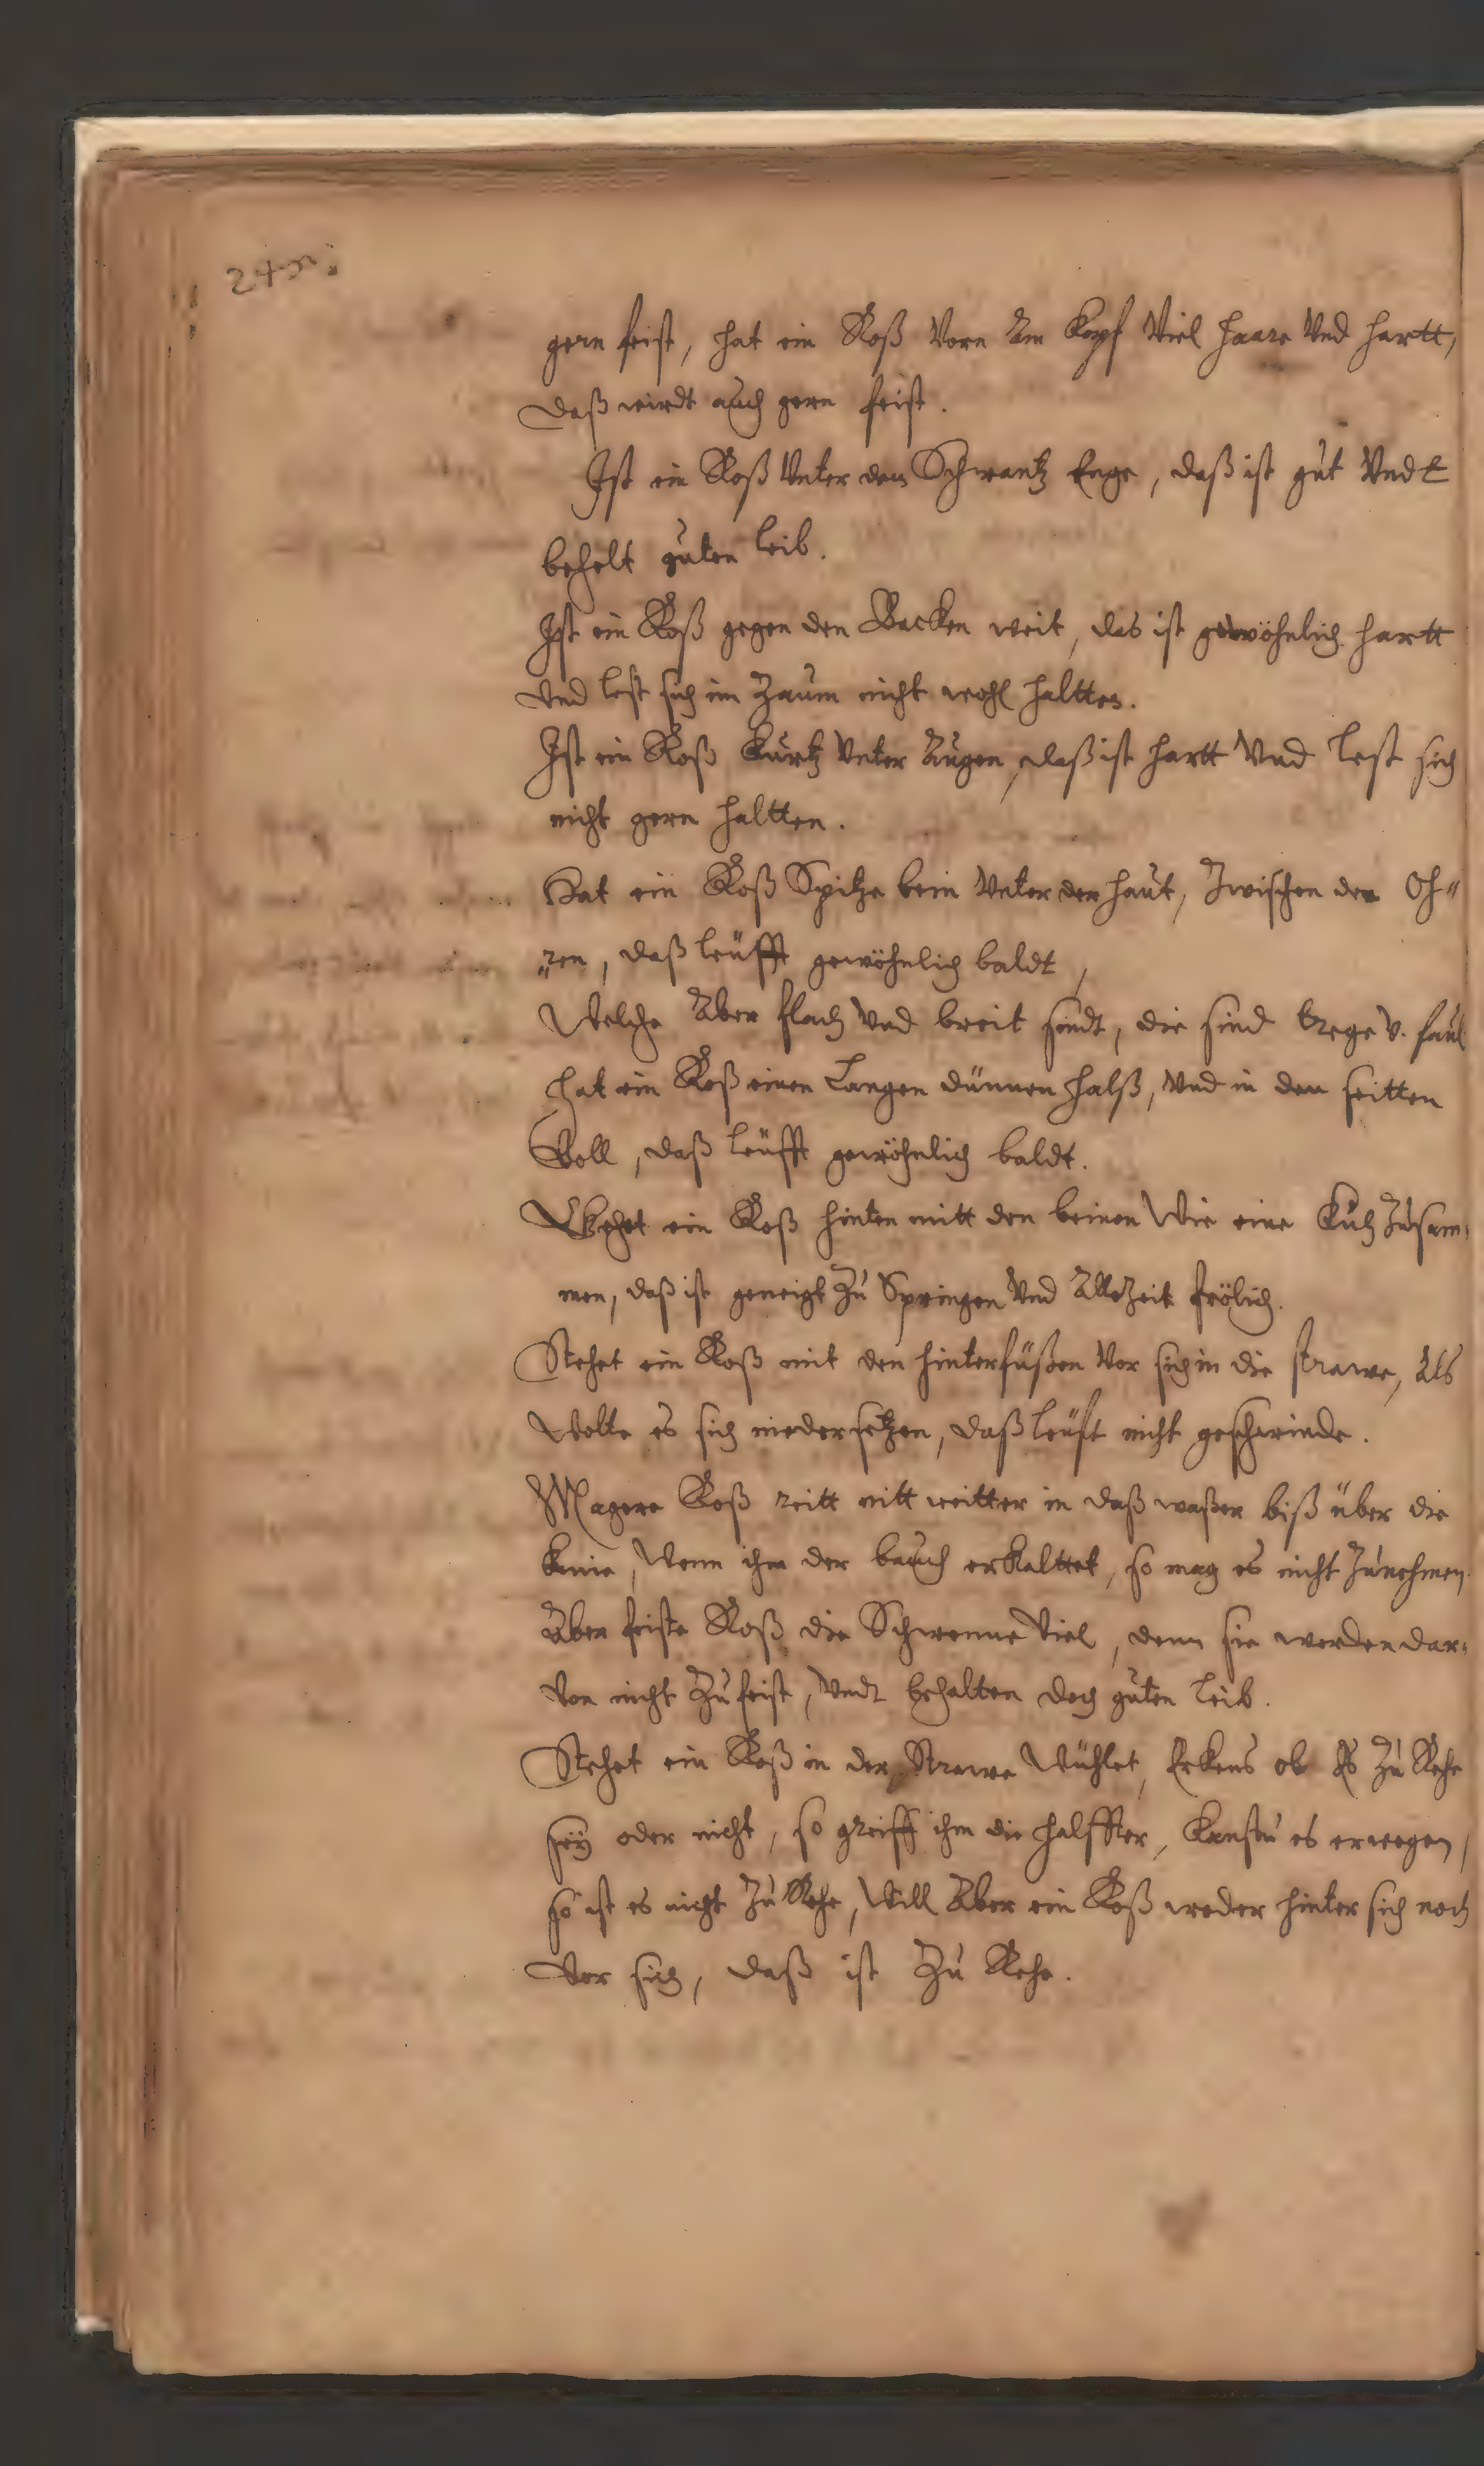 gern feist, hat ein Roß Vorn Am Kopf Viel Haare Vnd hartt,
daß wirdt auch gern feist.
Ist ein Roß Vnter dem Schwantz Enge, daß ist gut Vndt
behelt guten leib.
Ist ein Roß gegen den Backen weit, das ist gewöhnlich hartt
Vnd lest sich im Zaum nicht wohl haltten.
Ist ein Roß Kurtz Vnter Augen, daß ist hartt Vnd lest sich
nicht gern haltten.
Hat ein Roß Spitze bein Vnter der haut, Zwischen den Oh"
"ren, daß leüfft gewöhnlich baldt,
Welche Aber flach Vnd breit sindt, die sind trege v. faul
hat ein Roß einen Langen dünnen halß, Vnd in den seitten
Voll, daß leüfft gewöhnlich baldt.
ein Roß hinten mitt den beinen Wie eine Kuh Zusam-
men, daß ist geneigt Zu Springen Vnd Allezeit frölich.
Stehet ein Roß mit den hinterfüßen Vor sich in die strawe, Als
Wolte es sich niedersetzen, daß leüft nicht geschwinde.
Magere Roß reitt nitt weitter in daß waßer biß über die
Knie, Wenn ihm der bauch erkalttet, so mag es nicht Zunehmen
Aber feiste Roß die Schwemme Viel, denn sie werden dar-
Von nicht Zu feist, Vndt behalten doch guten leib.
Stehet ein Roß in der Strawe Wühlet, Erkens ob Es Zu Rehe
seÿ oder nicht, so greiff ihm die halffter, Kanstu es erwegen,
so ist es nicht Zu Rehe, Will Aber ein Roß weder hinter sich noch
Vor sich, daß ist Zu Rehe.